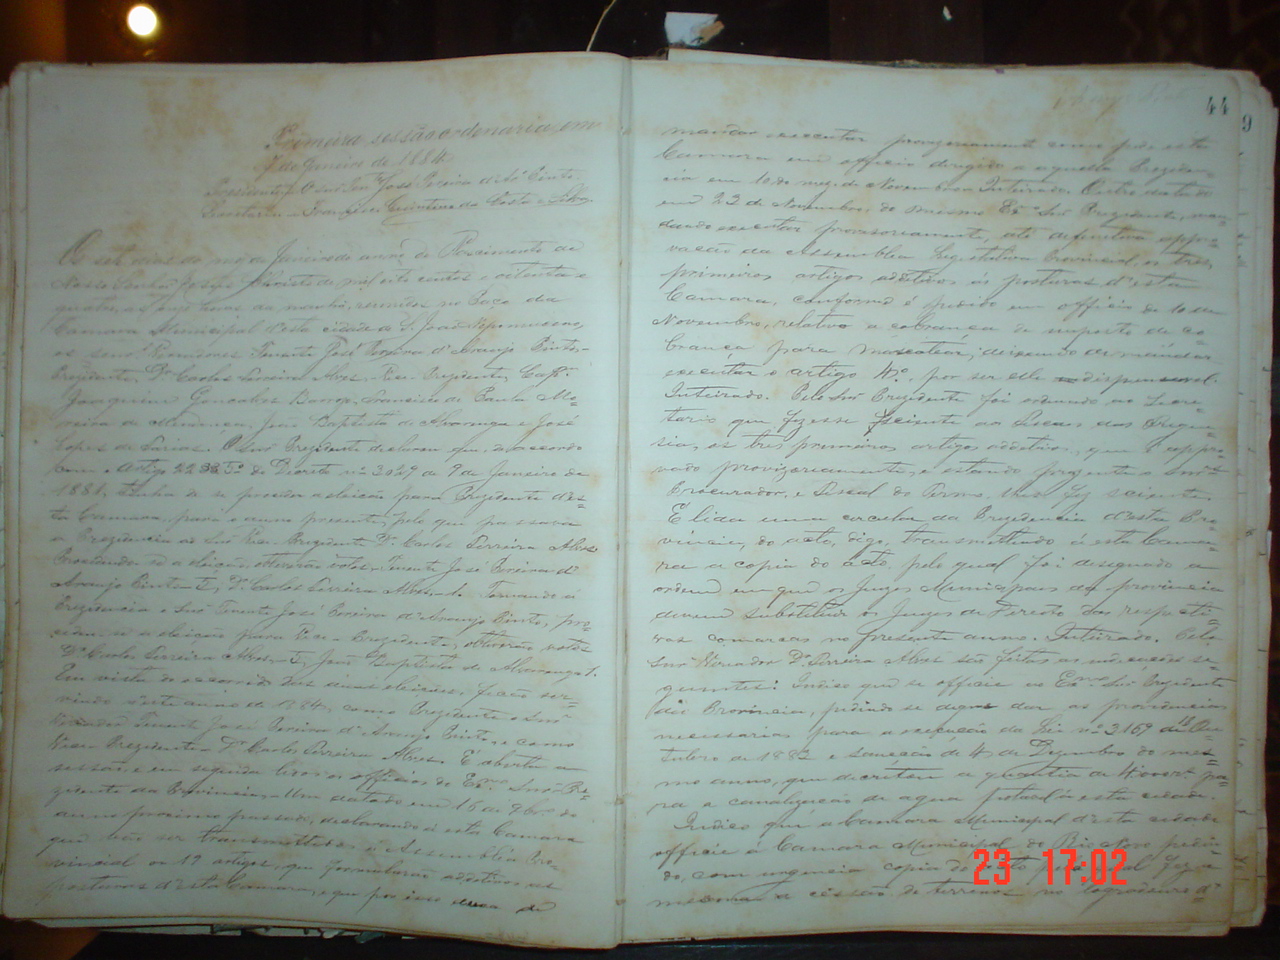 Primeira sessão ordenaria em
7 de Janeiro de 1884.
Presidente, O Snr Tene José Pereira d'Ar.º Pinto
Secretario - Francisco da Costa e Silva
Os sete dias do mez de Janeiro do anno do Nascimento de
Nosso Senhor Jesus Christo de mil oito centos e oitenta e
quatro, as onze horas da manhã, reunidos no Paço da
Camara Municipal desta cidade de S. João Nepomuceno,
os senrs Vereadores Tenente José Pereira d'Araujo Pinto-
Prezidente, Dr Carlos Ferreira Alves - Vice-Prezidente, Capm
Joaquim Gonçalves Francisco de Paula Mo=
reira de Mendonça, João Baptista de Alvarenga e José
Lopes de Farias. O Snr Prezidente declarou que, de accordo
com o artigo 22 § 5º do Decreto nº 3029 de 9 de Janeiro de
1881, tinha de se proceder a eleição para Prezidente des=
ta Camara, para o anno presente, pelo que passava
a Prezidencia ao Snr Vice-Prezidente Dr Carlos Ferreira Alves.
Procedendo se a eleição, obtiverão votos - Tenente José Pereira d'
Araujo Pinto 5, Dr Carlos Ferreira Alves 1. Tomando a
Prezidencia o Snr Tenente José Pereira d'Araujo Pinto, pro=
cedeu-se a eleição para Vice-Prezidente, obtiverão votos
Dr Carlos Ferreira Alves 5, João Baptista de Alvarenga 1.
Em vista do occorrido das duas eleições, ficão ser=
vindo neste anno de 1884, como Prezidente o Snr
Vereador Tenente José Pereira d'Araujo Pinto, e como
Vice-Prezidente - Dr Carlos Ferreira Alves. É aberta a
sessão, e em seguida lidos os officios do Exmo Snr Pre=
zidente da Provincia. - Um datado em 16 de 9br.º do
anno proximo passado, declarando á esta Camara
que vão ser transmettidos á Assemblea Pro=
vincial os 19 artigos, que formularão additivos as
posturas d'esta Camara, e que por isso deixa de
44
9
mandar executar provizoriamente como pede esta
Camara em officio dirigido a aquella Presiden=
cia em 10 do mez de Novembro. Inteirado. Outro datado
em 22 de Novembro, do mesmo Exmo Snr Prezidente, man=
dando executar provisoriamente, até definitiva appro=
vação da Assemblea Legislativa Provincial os tres
primeiros artigos additivos ás posturas d'esta
Camara, conforme é pedido em officio de 10 de
Novembro, relativo a cobrança de imposto de co=
brança para mascatear, deixando de mandar
executar o artigo 4º, por ser elle dispensavel.
Inteirado. Pelo Snr Prezidente foi ordenado ao Secre=
tario que fizesse sciente ao Fiscaes das Fregue=
sias, os tres primeiros artigos additivos, que é appro=
vado provizoriamente, e estando prezente o Snr
Procurador, e Fiscal do Termo, fez sciente.
É lida uma circular da Prezidencia d'esta Pro=
vincia, do acto, digo, transmettindo á esta Cama=
ra a copia do acto, pelo qual foi designado a
ordem em que os Juizes Municipaes da provincia
devem substituir os Juizes de Direito das respecti=
vas comarcas no presente anno. Inteirado. Pelo
Snr Vereador Dr Ferreira Alves são feitas as indicações se=
guintes: Indico que se officie ao Exmo Snr Prezidente
da Provincia, pedindo se digne dar as providencias
necessarias para a execução da Lei nº 3169 de Ou=
tubro de 1883 e sancção de 4 de Dezembro do mes=
mo anno, que decretou a quantia de pa=
ra a canalização de agua potavel á esta cidade.
Indico que a Camara Municipal d'esta cidade
officie á Camara Municipal do Rio Novo pedin=
do, com urgencia copia do acto pelo qual fez a
mesma a cessão de terrenos no logradouro d'
23 17:02